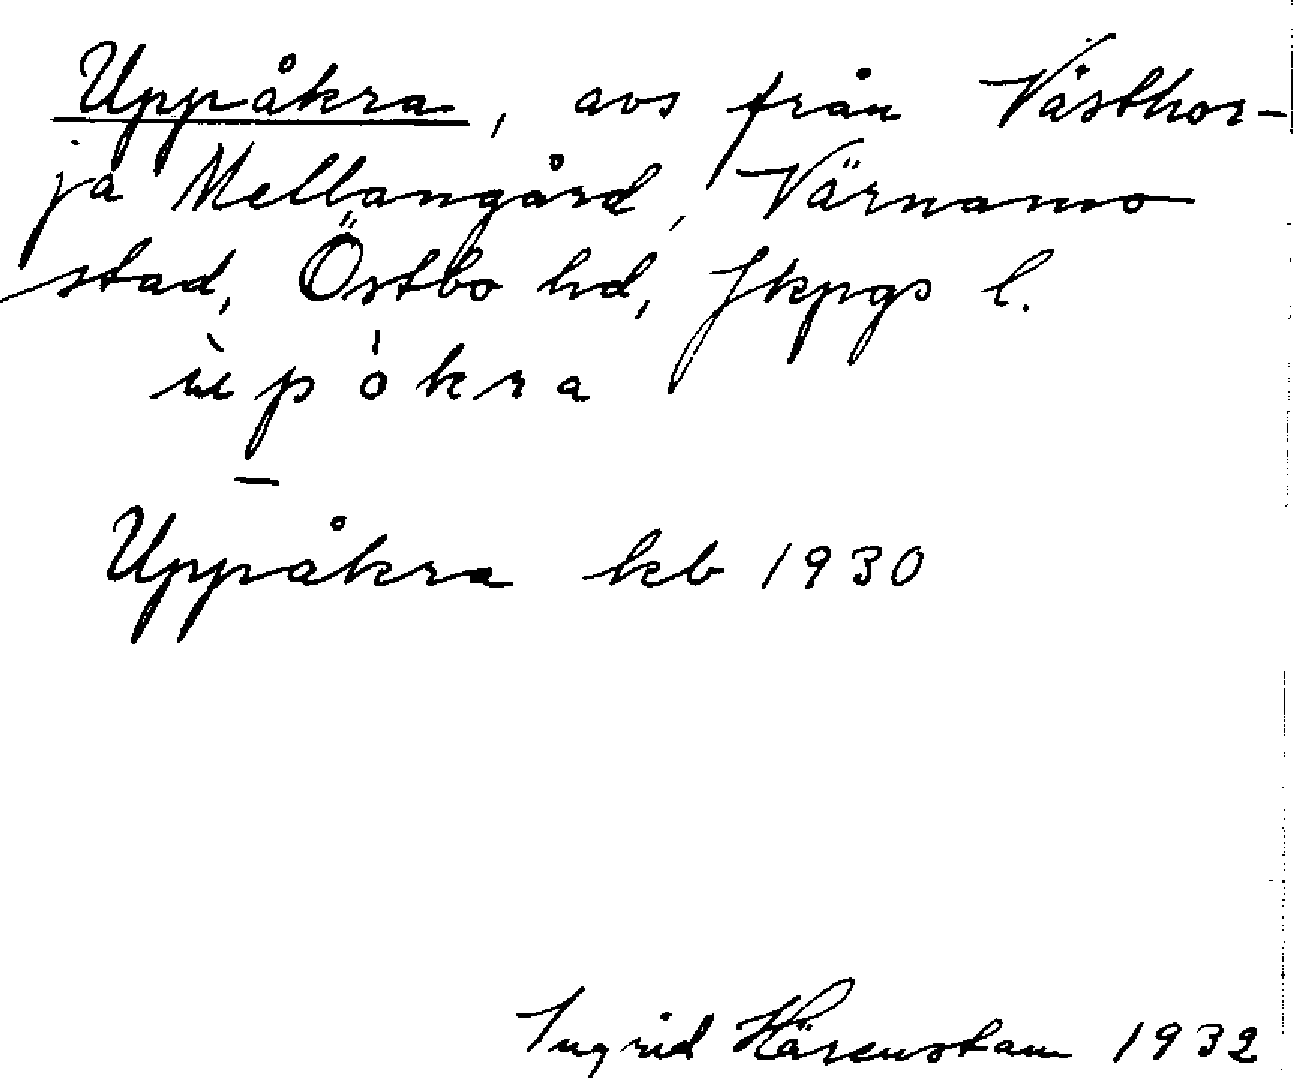 Uppåkra, avs från Västhor-
ja Mellangård, Värnamo
stad, Östbo hd, Jkpgs l.
ùpókra
—
Uppåkra kb 1930
Ingrid Härenstam 1932